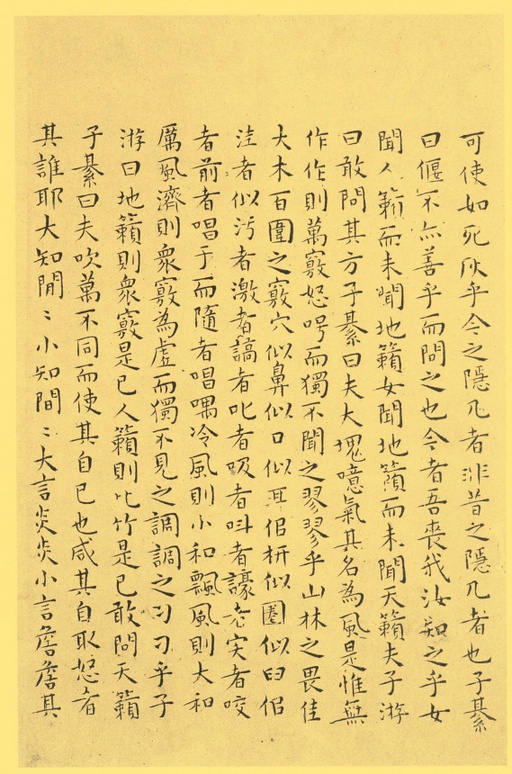 可使如死灰乎今之隱几者非昔之隱几者也子綦
曰偃不亦善乎而問之也今者吾喪我汝知之乎女
聞人籟而未聞地籟女聞地籟而未聞天籟夫子游
曰敢問其方子綦曰夫大塊噫氣其名為風是惟無
作作則萬竅怒呺而獨不聞之翏翏乎山林之畏佳
大木百圍之竅穴似鼻似口似耳佀枅似圈似臼佀
洼者似污者激者謞者叱者吸者叫者譹者宎者咬
者前者唱于而隨者唱喁冷風則小和飄風則大和
厲風濟則衆竅為虛而獨不見之調調之刁刁乎子
游曰地籟則衆竅是已人籟則比竹是已敢問天籟
子綦曰夫吹萬不同而使其自已也咸其自取怒者
其誰耶大知閒〻小知間〻大言炎炎小言詹詹其